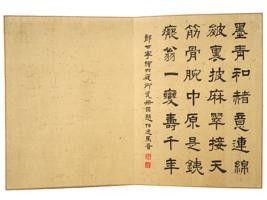 墨青和楮意連綿
皴裏披麻翠接天
筋骨腕中原是銕
癡翁一變壽千年